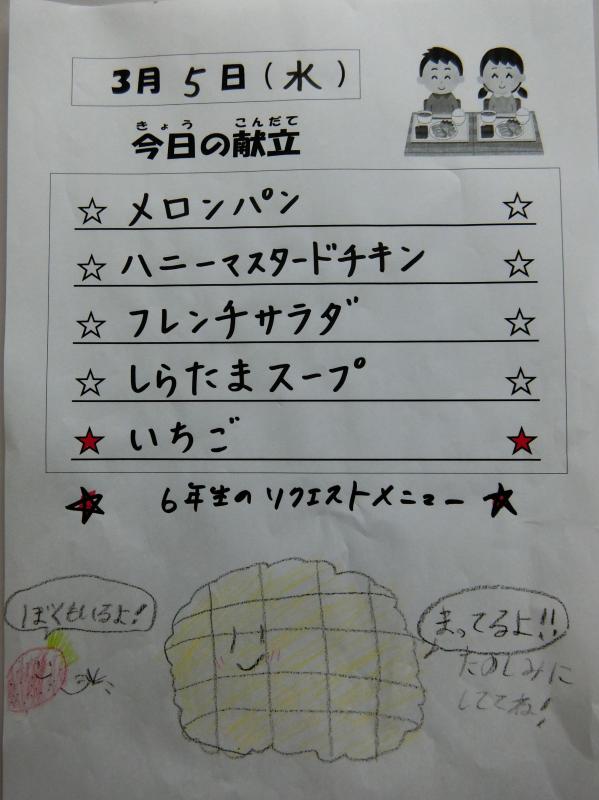 3月 5日(水)
きょう こんだて
今日の献立
☆ メロンパン ☆
☆ ハニーマスタードチキン ☆
☆ フレンチサラダ ☆
☆ しらたまスープ ☆
★ いちご ★
★ 6年生のリクエストメニュー ★
ぼくもいるよ!
まってるよ!!
たのしみに
しててね!